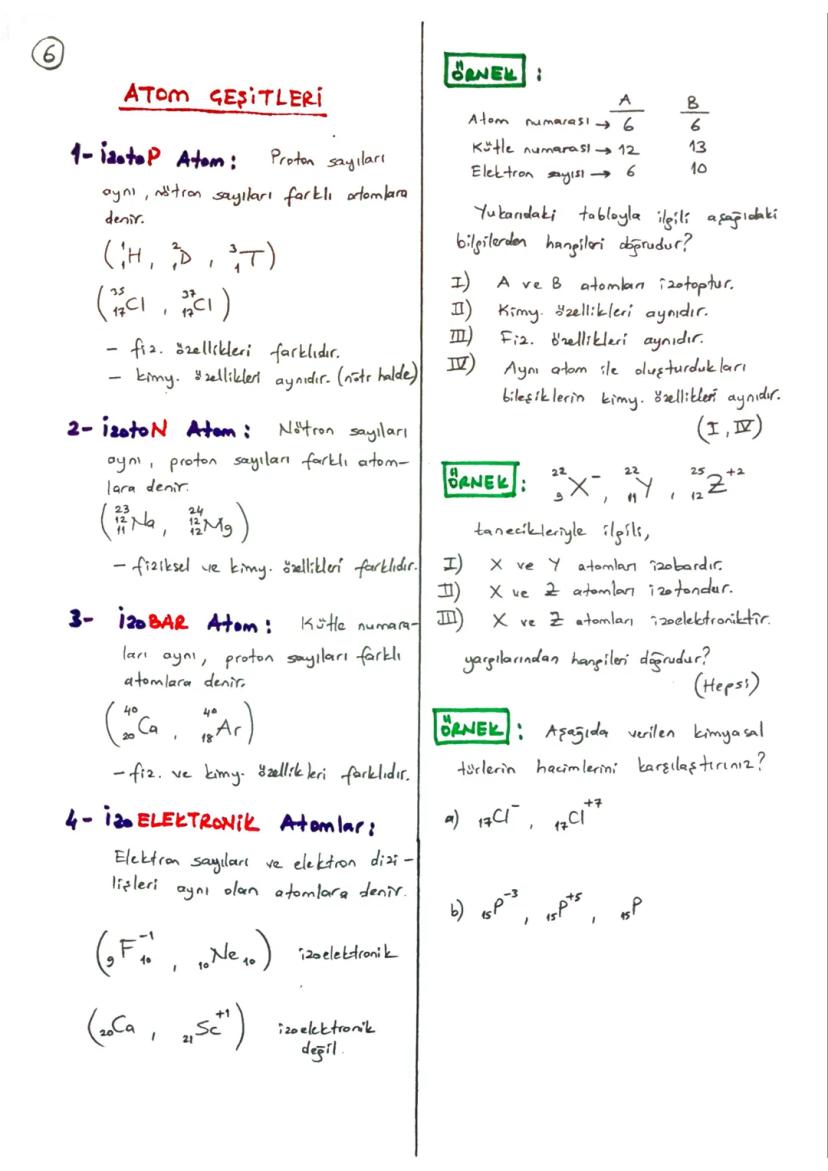 6
ATOM ÇEŞİTLERİ
1- izotoP Atom : Proton sayıları
aynı, nötron sayıları farklı atomlara
denir.
(¹₁H, ²₁D, ³₁T)
(³⁵₁₇Cl, ³⁷₁₇Cl)
- fiz. özellikleri farklıdır.
- kimy. özellikleri aynıdır. (nötr halde)
2- izotoN Atom : Nötron sayıları
aynı, proton sayıları farklı atom-
lara denir.
(²³₁₁Na 12, ²⁴₁₂Mg 12)
- fiziksel ve kimy. özellikleri farklıdır.
3- izoBAR Atom : Kütle numara-
ları aynı, proton sayıları farklı
atomlara denir.
(⁴⁰₂₀Ca, ⁴⁰₁₈Ar)
- fiz. ve kimy. özellikleri farklıdır.
4- izoELEKTRONİK Atomlar :
Elektron sayıları ve elektron dizi-
lişleri aynı olan atomlara denir.
(₉F⁻¹₁₀, ₁₀Ne₁₀) izoelektronik
(₂₀Ca, ₂₁Sc⁺¹) izoelektronik
değil.
ÖRNEK :
A B
Atom numarası → 6 6
Kütle numarası → 12 13
Elektron sayısı → 6 10
Yukarıdaki tabloyla ilgili aşağıdaki
bilgilerden hangileri doğrudur?
I) A ve B atomları izotoptur.
II) Kimy. özellikleri aynıdır.
III) Fiz. özellikleri aynıdır.
IV) Aynı atom ile oluşturdukları
bileşiklerin kimy. özellikleri aynıdır.
(I, IV)
ÖRNEK : ²²₉X⁻, ²²₁₁Y, ²⁵₁₂Z⁺²
tanecikleriyle ilgili,
I) X ve Y atomları izobardır.
II) X ve Z atomları izotondur.
III) X ve Z atomları izoelektroniktir.
yargılarından hangileri doğrudur?
(Hepsi)
ÖRNEK : Aşağıda verilen kimyasal
türlerin hacimlerini karşılaştırınız?
a) ₁₇Cl⁻, ₁₇Cl⁺⁷
b) ₁₅P⁻³, ₁₅P⁺⁵, ₁₅P